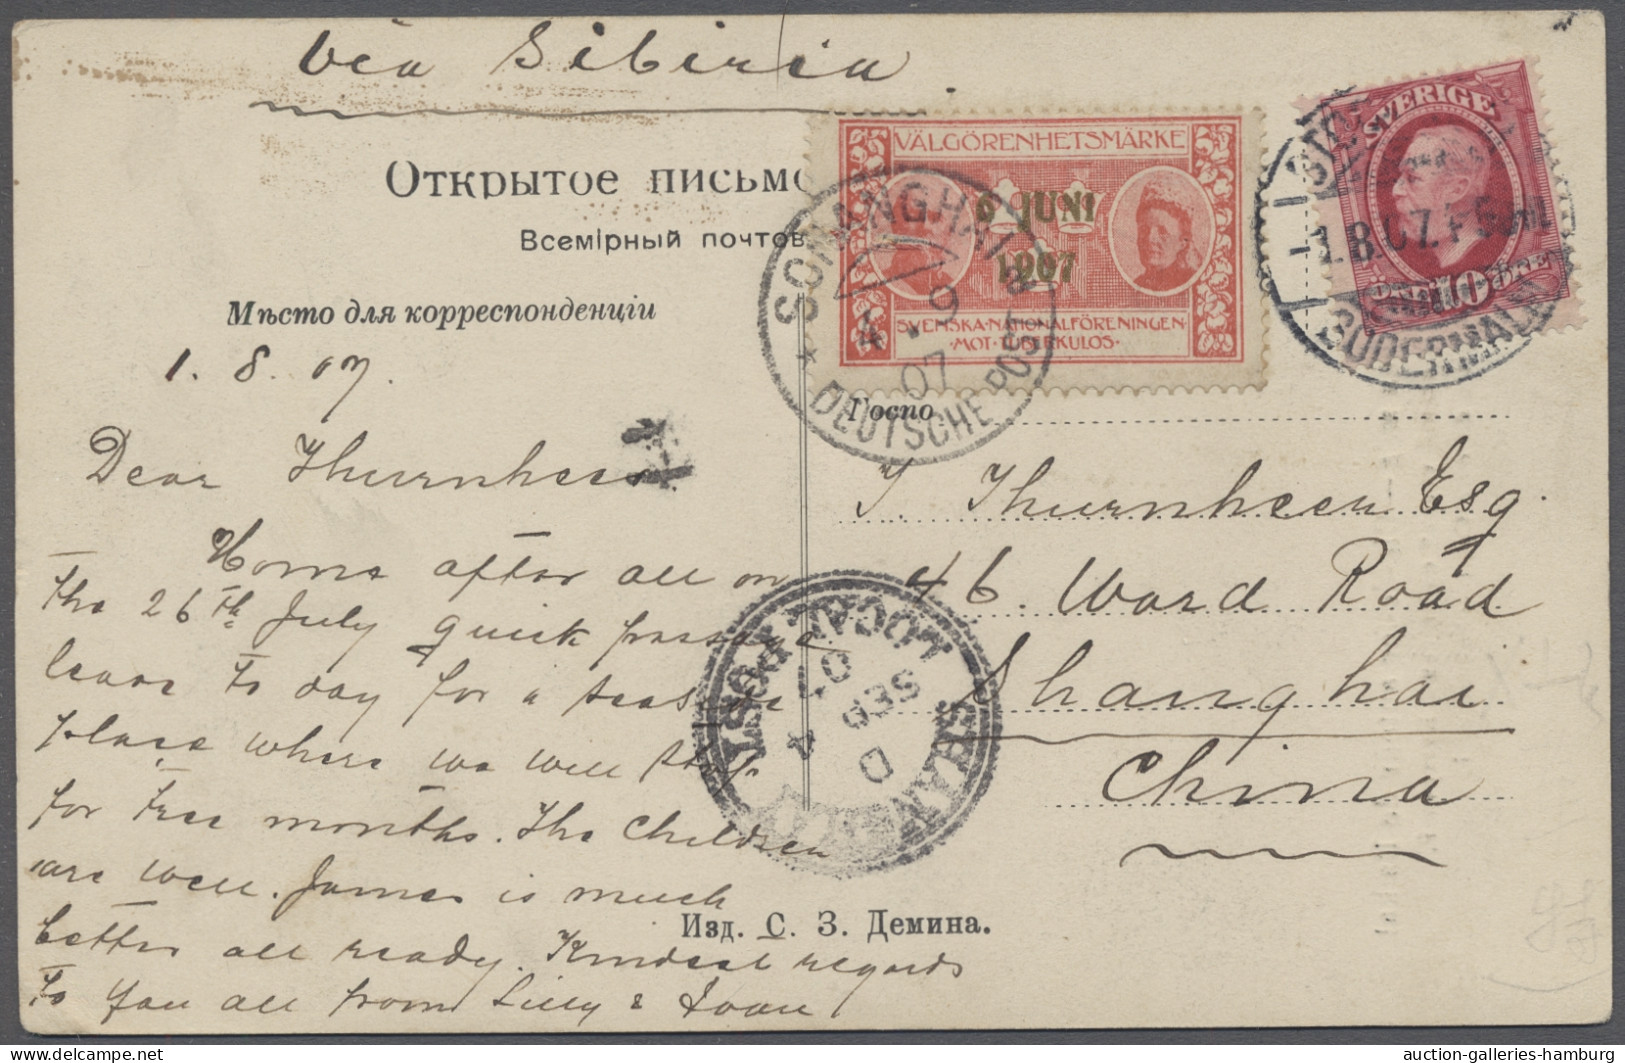 Via Sibiria.
VÄLGÖRENHETSMÄRKE
6 JUNI
1907
SVENSKA·NATIONALFÖRENINGEN·
·MOT·TUBERKULOS·
SVERIGE
10
1.8.07.
SÖDERMALM
SCHANGHAI
4 9
07
DEUTSCHE POST
Открытое письмо
Всемірный почтов
Мѣсто для корреспонденціи
Госпо
1. 8. 07.
Dear Thurnheer
Home after all on
the 26th July quick passage
leave to day for a seaside
place where we will stop
for tree months. The Children
are well. James is much
better all ready. Kindest regards
to you all from Lilly &
T Thurnheer Esq.
46. Ward Road
Shanghai
China
SHANGHAI LOCAL POST
D
4
SEP
07
Изд. С. З. Демина.
auction-galleries-hamburg